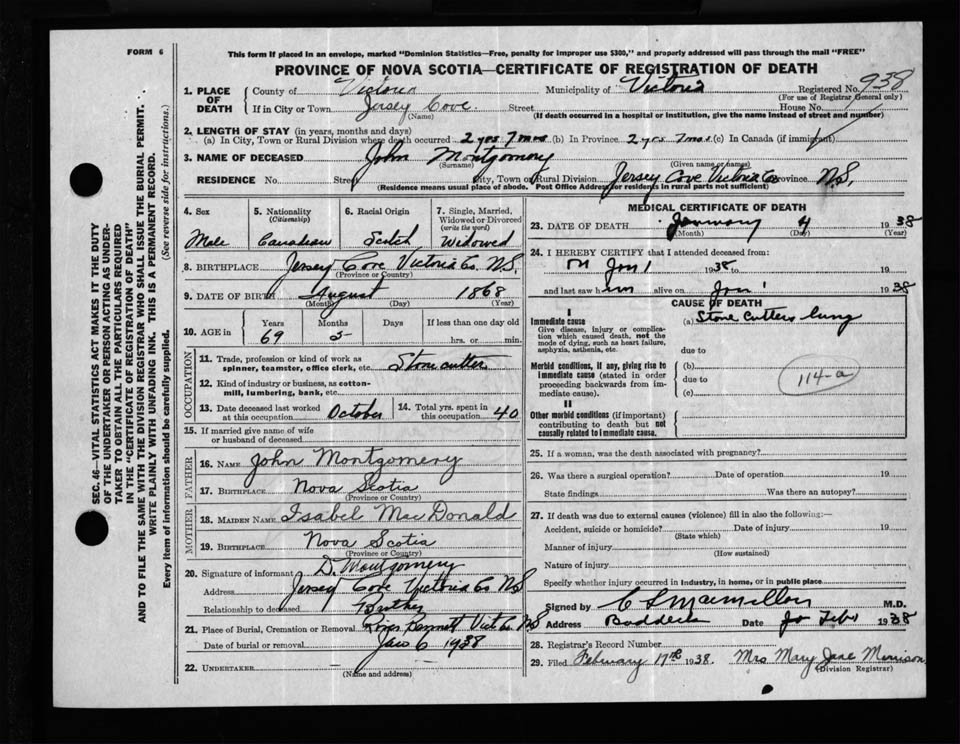 FORM 6
This form if placed in an envelope, marked "Dominion Statistics—Free, penalty for improper use $300," and properly addressed will pass through the mail "FREE"
PROVINCE OF NOVA SCOTIA—CERTIFICATE OF REGISTRATION OF DEATH
SEC. 46—VITAL STATISTICS ACT MAKES IT THE DUTY
OF THE UNDERTAKER OR PERSON ACTING AS UNDER-
TAKER TO OBTAIN ALL THE PARTICULARS REQUIRED
IN THE "CERTIFICATE OF REGISTRATION OF DEATH"
AND TO FILE THE SAME WITH THE DIVISION REGISTRAR WHO SHALL ISSUE THE BURIAL PERMIT.
WRITE PLAINLY WITH UNFADING INK. THIS IS A PERMANENT RECORD.
Every item of information should be carefully supplied. (See reverse side for instructions.)
1. PLACE OF DEATH County of Victoria Municipality of Victoria Registered No. 938
(For use of Registrar General only)
If in City or Town Jersey Cove Street House No.
(Name) (If death occurred in a hospital or institution, give the name instead of street and number)
2. LENGTH OF STAY (in years, months and days)
(a) In City, Town or Rural Division where death occurred 2 yrs 7 mos (b) In Province 2 yrs 7 mos (c) In Canada (if immigrant)
3. NAME OF DECEASED John Montgomery
(Surname) (Given name or names)
RESIDENCE No. Street City, Town or Rural Division Jersey Cove Victoria Co Province N.S.
(Residence means usual place of abode. Post Office Address for residents in rural parts not sufficient)
4. Sex 5. Nationality (Citizenship) 6. Racial Origin 7. Single, Married, Widowed or Divorced (write the word)
Male Canadian Scotch Widowed
8. BIRTHPLACE Jersey Cove Victoria Co. N.S.
(Province or Country)
9. DATE OF BIRTH August 1868
(Month) (Day) (Year)
10. AGE in Years Months Days If less than one day old
69 5 hrs. or min.
OCCUPATION
11. Trade, profession or kind of work as
spinner, teamster, office clerk, etc. Stonecutter
12. Kind of industry or business, as cotton-
mill, lumbering, bank, etc.
13. Date deceased last worked at this occupation October 14. Total yrs. spent in this occupation 40
15. If married give name of wife
or husband of deceased
FATHER
16. NAME John Montgomery
17. BIRTHPLACE Nova Scotia
(Province or Country)
MOTHER
18. MAIDEN NAME Isabel MacDonald
19. BIRTHPLACE Nova Scotia
(Province or Country)
20. Signature of informant D. Montgomery
Address Jersey Cove Victoria Co N.S
Relationship to deceased Brother
21. Place of Burial, Cremation or Removal Bennett Vict Co. N.S
Date of burial or removal Jan 6 1938
22. UNDERTAKER
(Name and address)
MEDICAL CERTIFICATE OF DEATH
23. DATE OF DEATH January 4 1938
(Month) (Day) (Year)
24. I HEREBY CERTIFY that I attended deceased from:
on Jan 1 1938 to 19
and last saw him alive on Jan 1 1938
CAUSE OF DEATH
I
Immediate cause (a) Stone Cutters lung
Give disease, injury or complica-
tion which caused death, not the
mode of dying, such as heart failure,
asphyxia, asthenia, etc. due to
Morbid conditions, if any, giving rise to (b)
immediate cause (stated in order due to
proceeding backwards from im- (c)
mediate cause).
114-a
II
Other morbid conditions (if important)
contributing to death but not
causally related to immediate cause.
25. If a woman, was the death associated with pregnancy?
26. Was there a surgical operation? Date of operation 19
State findings Was there an autopsy?
27. If death was due to external causes (violence) fill in also the following:—
Accident, suicide or homicide? Date of injury 19
(State which)
Manner of injury
(How sustained)
Nature of injury
Specify whether injury occurred in industry, in home, or in public place
Signed by C L Macmillan M.D.
Address Baddeck Date Feby 1938
28. Registrar's Record Number
29. Filed February 17th 1938. Mrs Mary Jane Morrison
(Division Registrar)